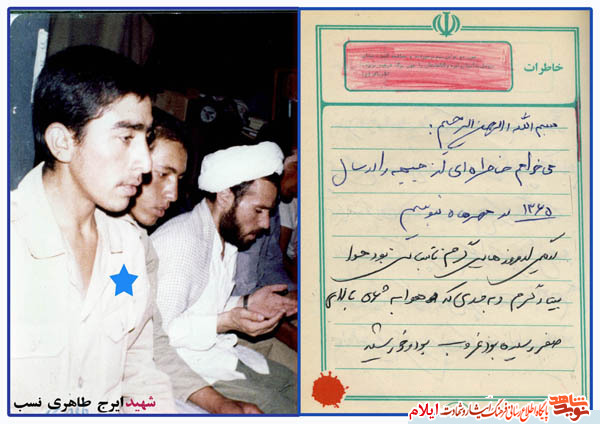 خاطرات
بسم الله الرحمن الرحیم :
می خواهم خاطره ای از جبهه را در سال
۱۳۶۵ در مهرماه بنویسم
یکی از روزهای گرم تابستان بود هوا
بسیار گرم و به حدی که هوا به بالای
صفر رسیده بود غروب بود و خورشید
شهید ایرج طاهری نسب
نوید شاهد پایگاه اطلاع رسانی فرهنگ ایثار و شهادت ایلام